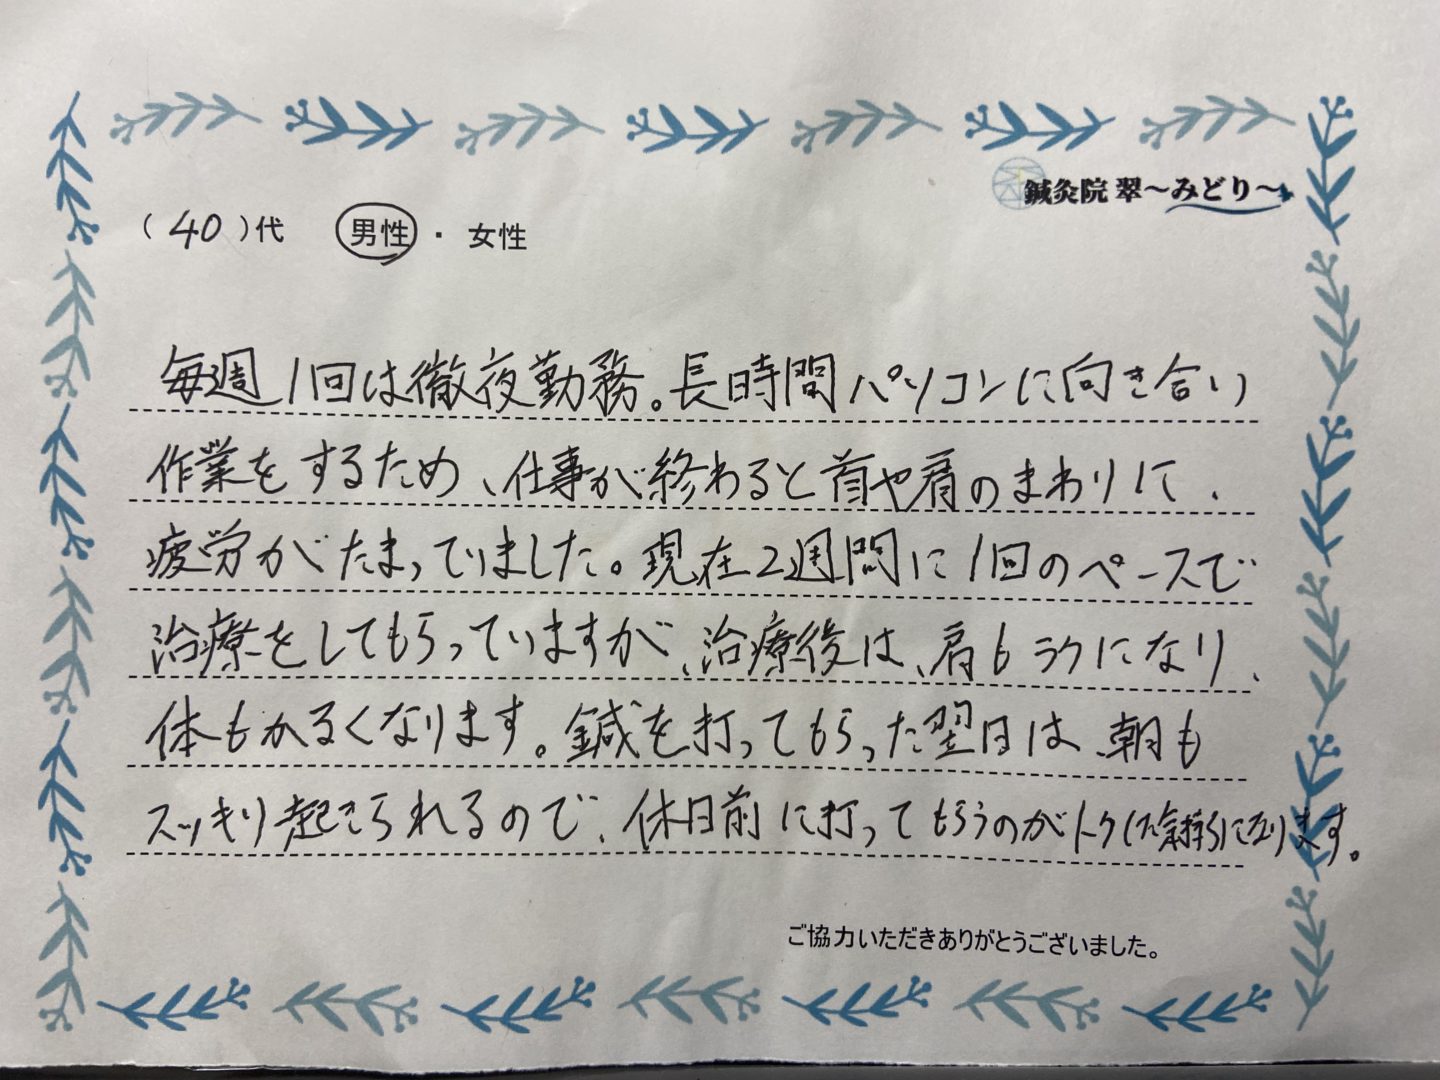 鍼灸院 翠～みどり～
（ 40 ）代 男性 ・ 女性
毎週1回は徹夜勤務。長時間パソコンに向き合い
作業をするため、仕事が終わると首や肩のまわりに、
疲労がたまっていました。現在2週間に1回のペースで
治療をしてもらっていますが、治療後は、肩もラクになり、
体もかるくなります。鍼を打ってもらった翌日は、朝も
スッキリ起きられるので、休日前に打ってもらうのがトクした気持ちになります。
ご協力いただきありがとうございました。